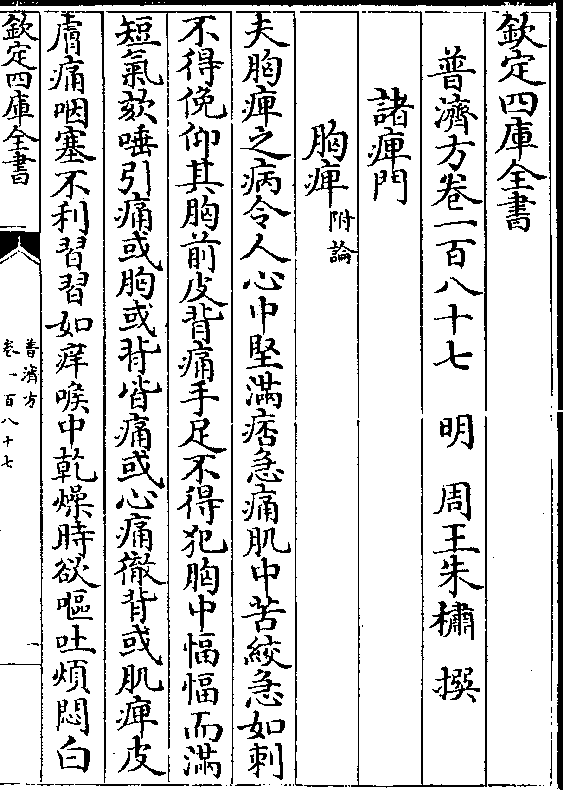 欽定四庫全書
普濟方卷一百八十七　明　周王朱橚　撰
諸痺門
胸痺附論
夫胸痺之病令人心中堅滿痞急痛肌中苦絞急如刺
不得俛仰其胸前皮背痛手足不得犯胸中愊愊而滿
短氣欬唾引痛或胸或背皆痛或心痛徹背或肌痺皮
膚痛咽塞不利習習如痒喉中乾燥時欲嘔吐煩悶白
欽定四庫全書
普濟方
卷一百八十七
一